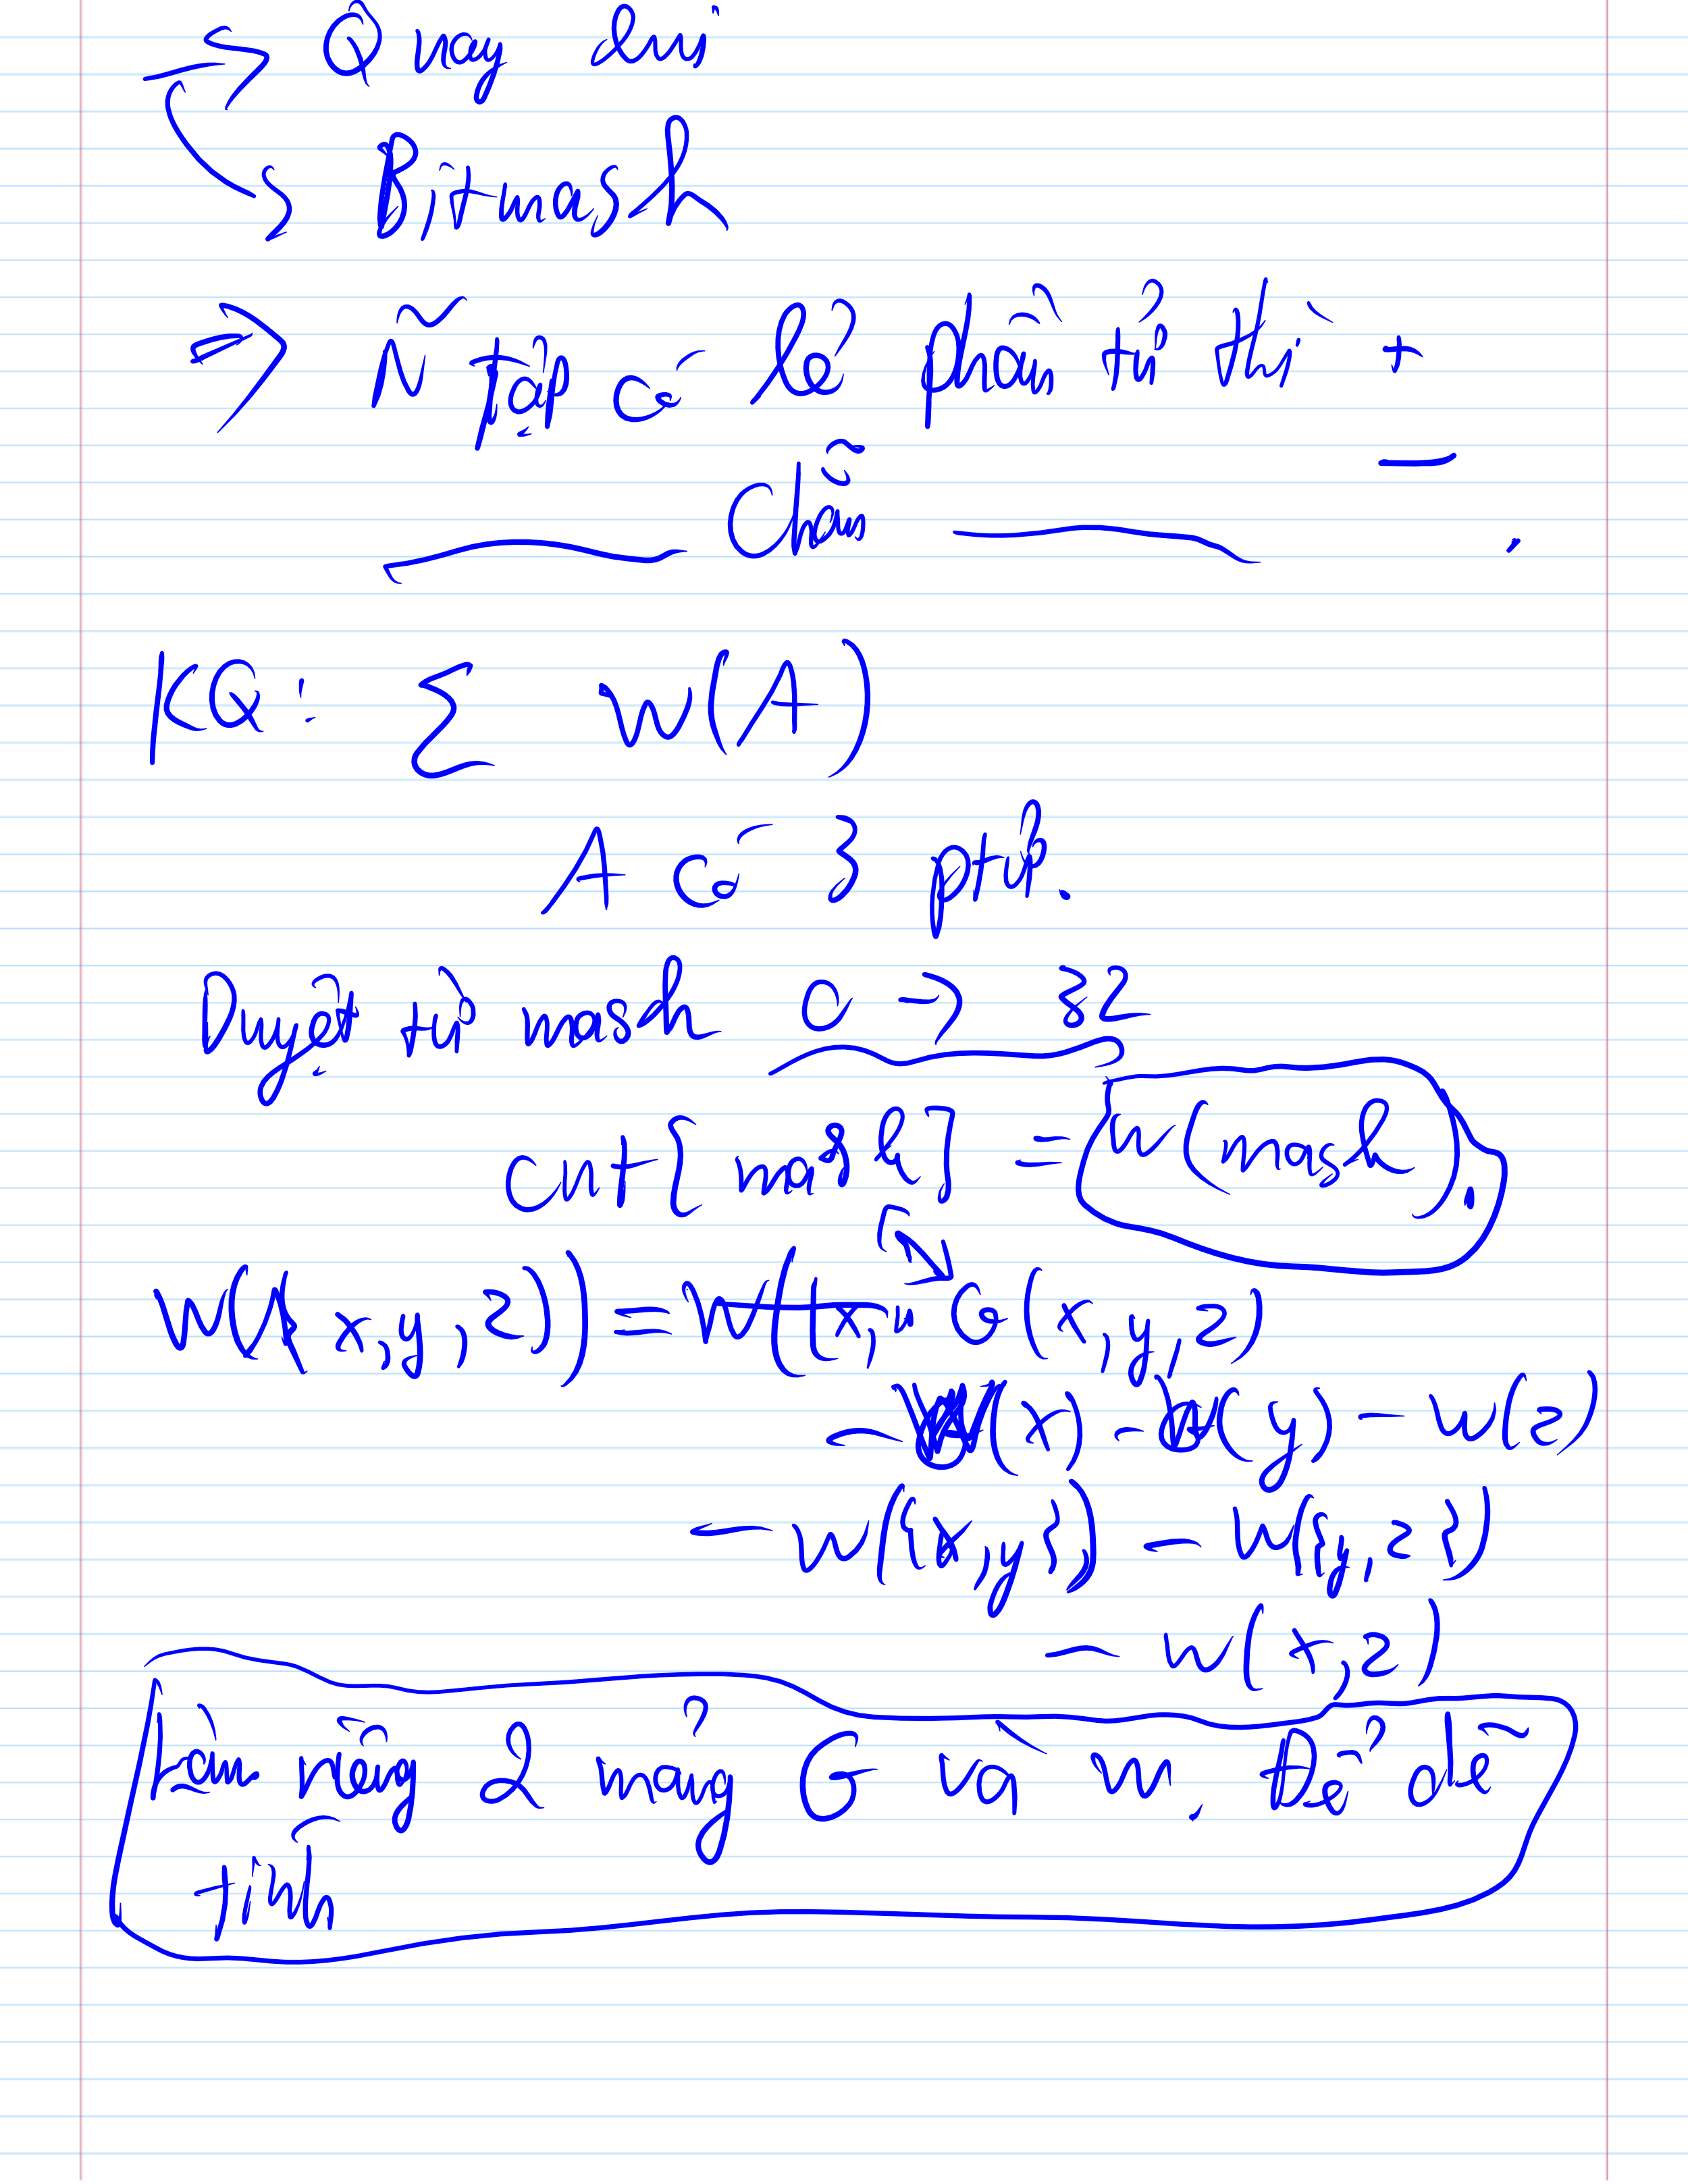 → Quay lui
→ Bitmask
⇒ Ñ tập có lẻ phần tử thì +
—
Chẵn .
KQ: ∑ W(A)
A có 3 ptử.
Duyệt từ mask 0 → 32
cnt[mask] = W(mask).
W({x,y,z}) = G(x,y,z)
- W(x) - W(y) - W(z)
- W({x,y}) - W({y,z})
- W(x,z)
Làm riêng 2 mảng G và W. Để dễ
tính